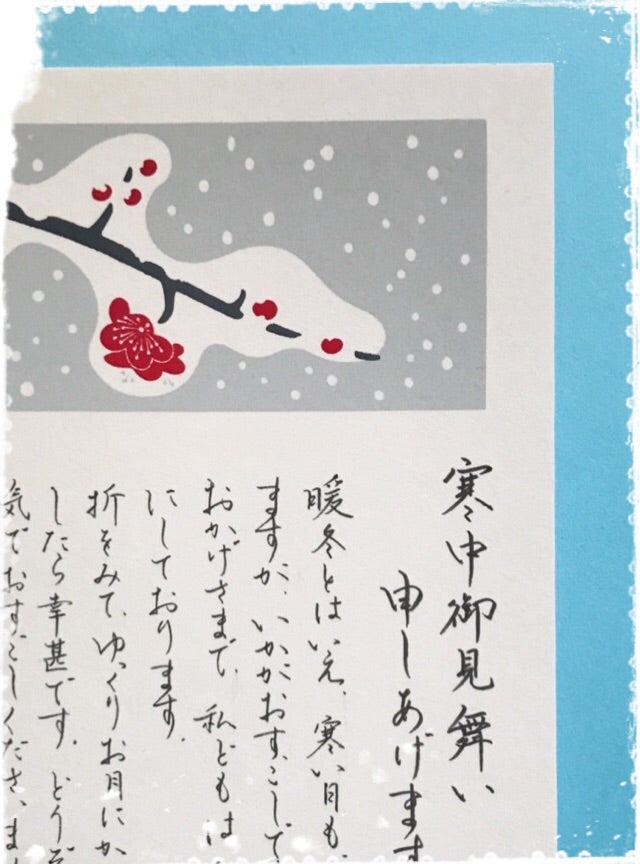 寒中御見舞い
申しあげます
暖冬とはいえ、寒い日も
ますが、いかがおすごしで
おかげさまで、私どもは
にしております。
折をみて、ゆっくりお目にか
したら幸甚です。どうぞ
気でおすごしくださいま